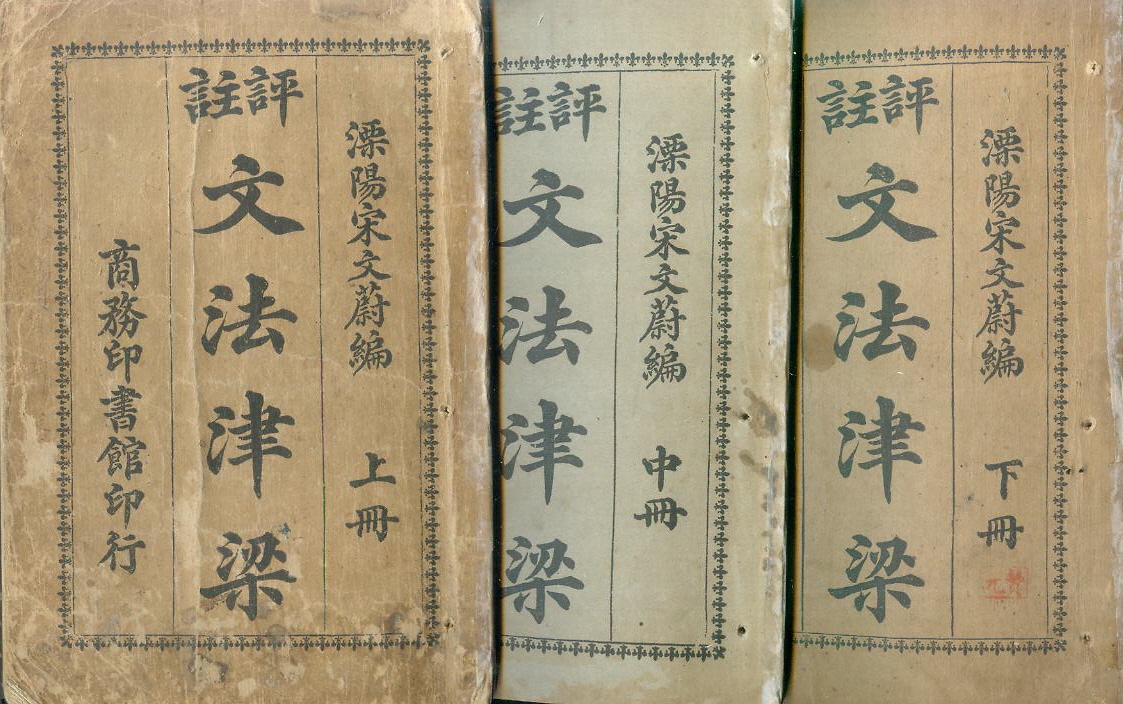 溧陽宋文蔚編 上冊
評註
文法津梁
商務印書館印行
溧陽宋文蔚編 中冊
評註
文法津梁
溧陽宋文蔚編 下冊
評註
文法津梁